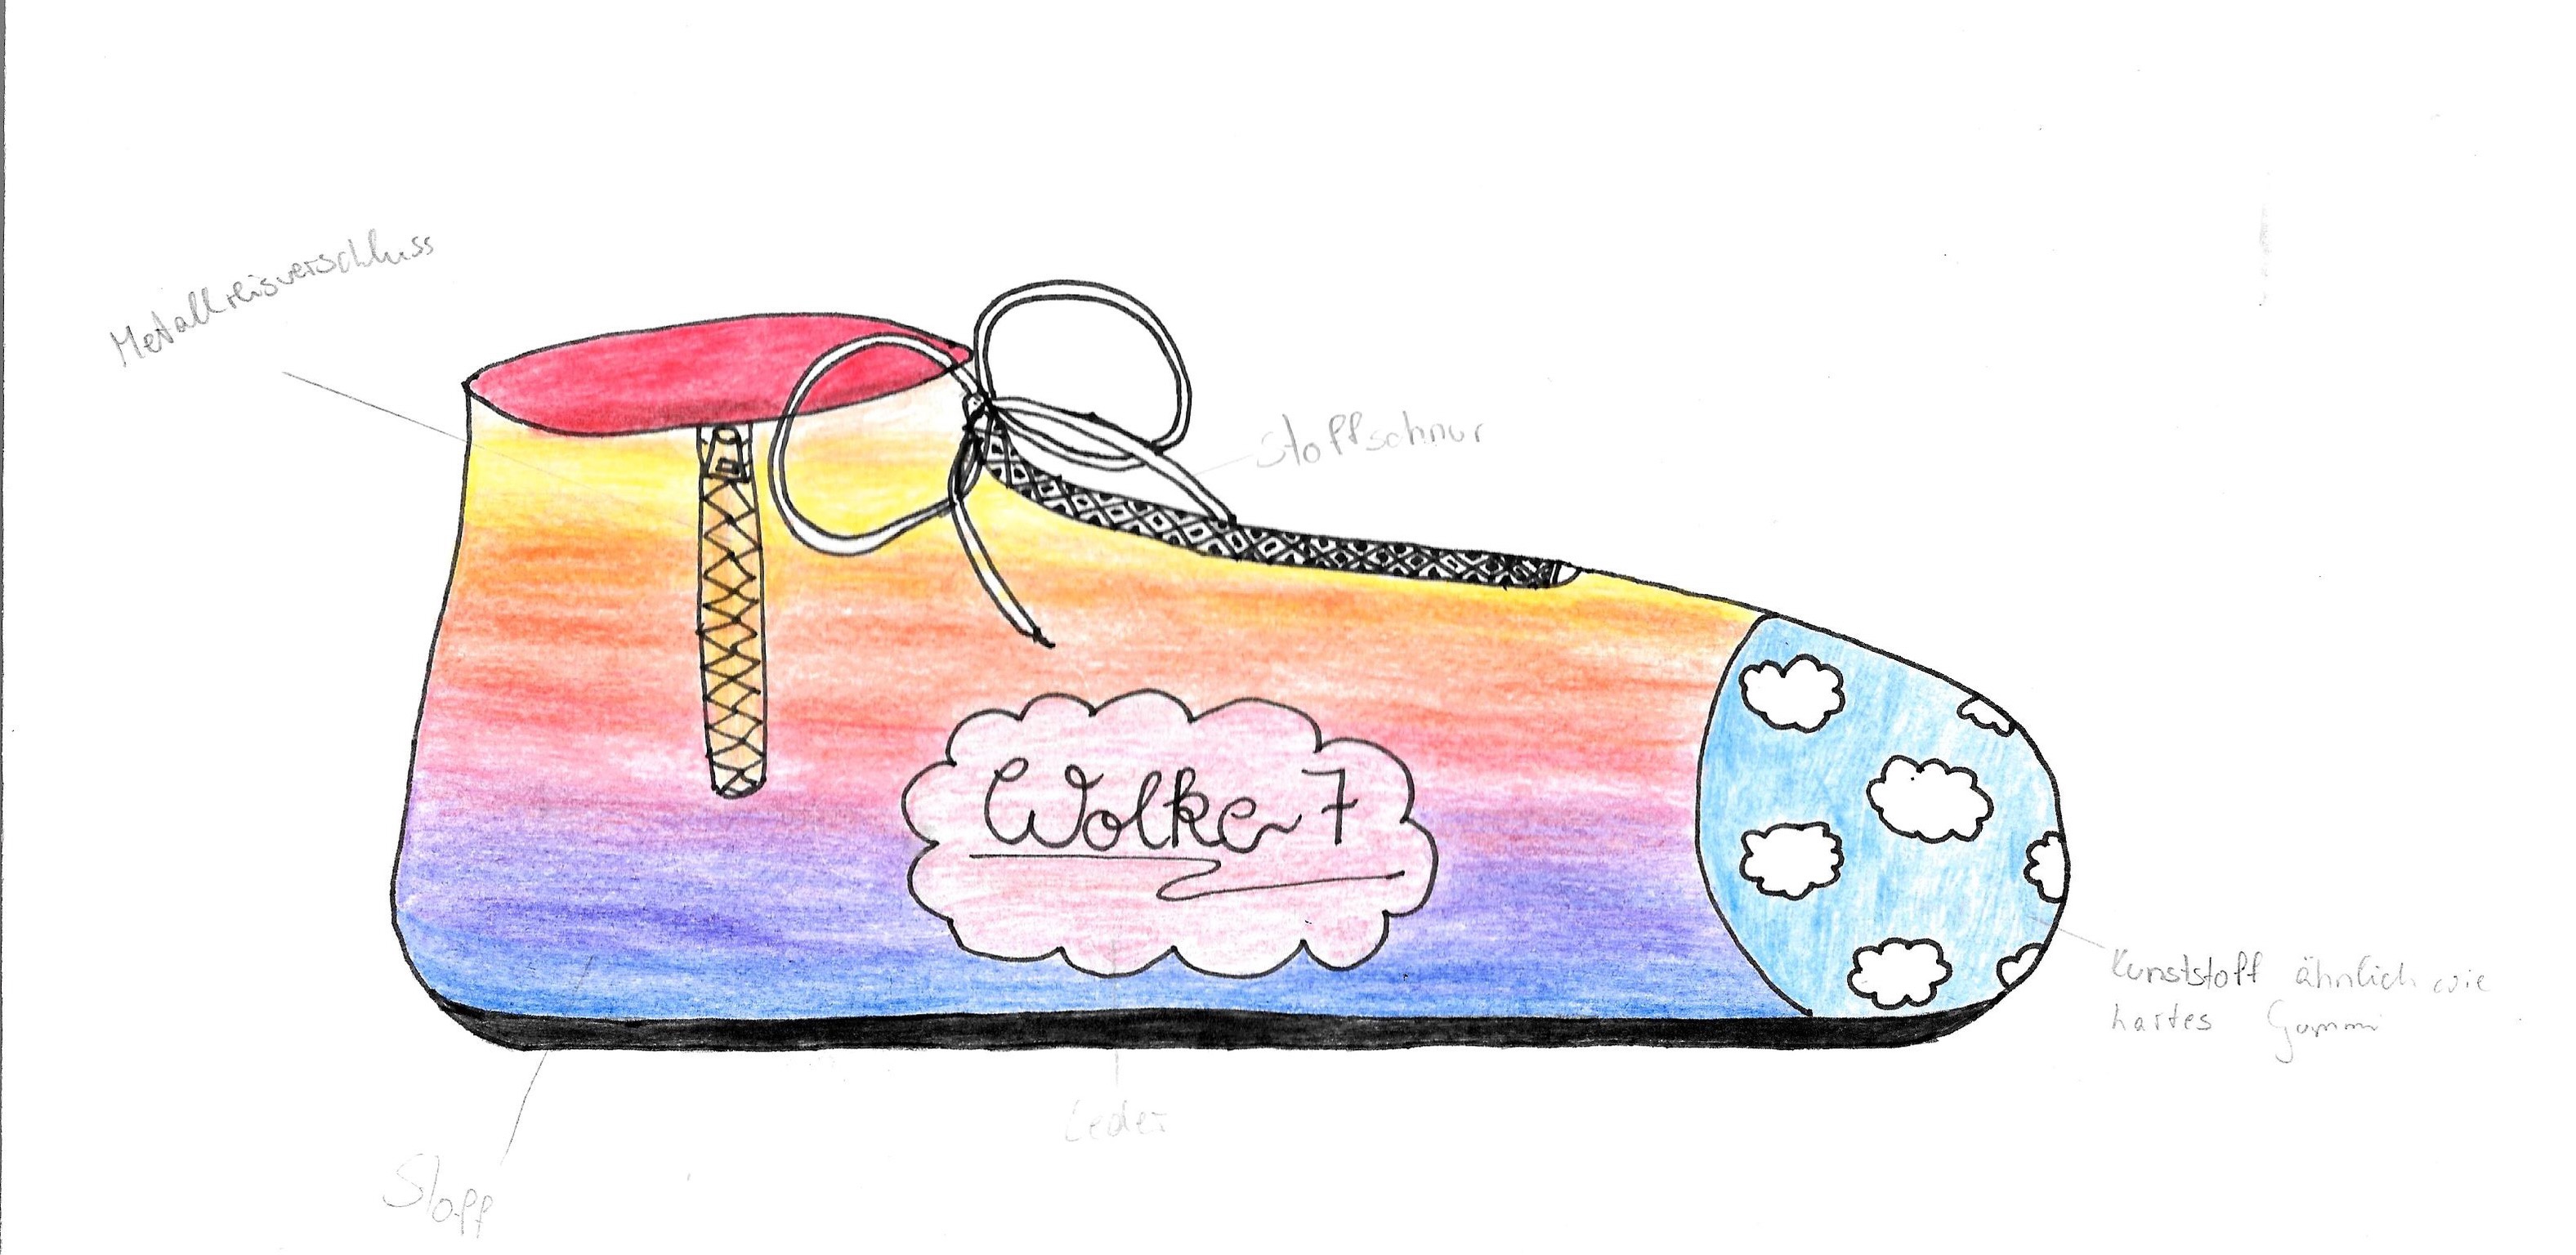 Metallreisverschluss
Stoffschnur
Wolke 7
Kunststoff ähnlich wie
hartes Gummi
Leder
Stoff